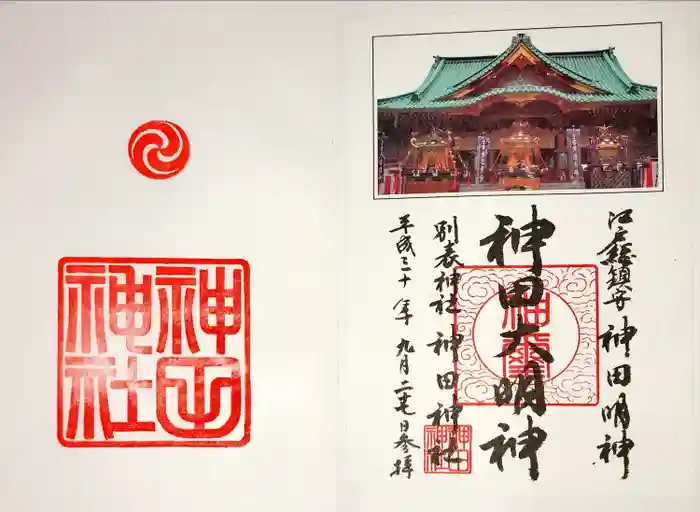 江戸総鎮守 神田明神
神田大明神
別表神社 神田神社
平成三十年 九月二十七日参拝
神田神社
神田
神社